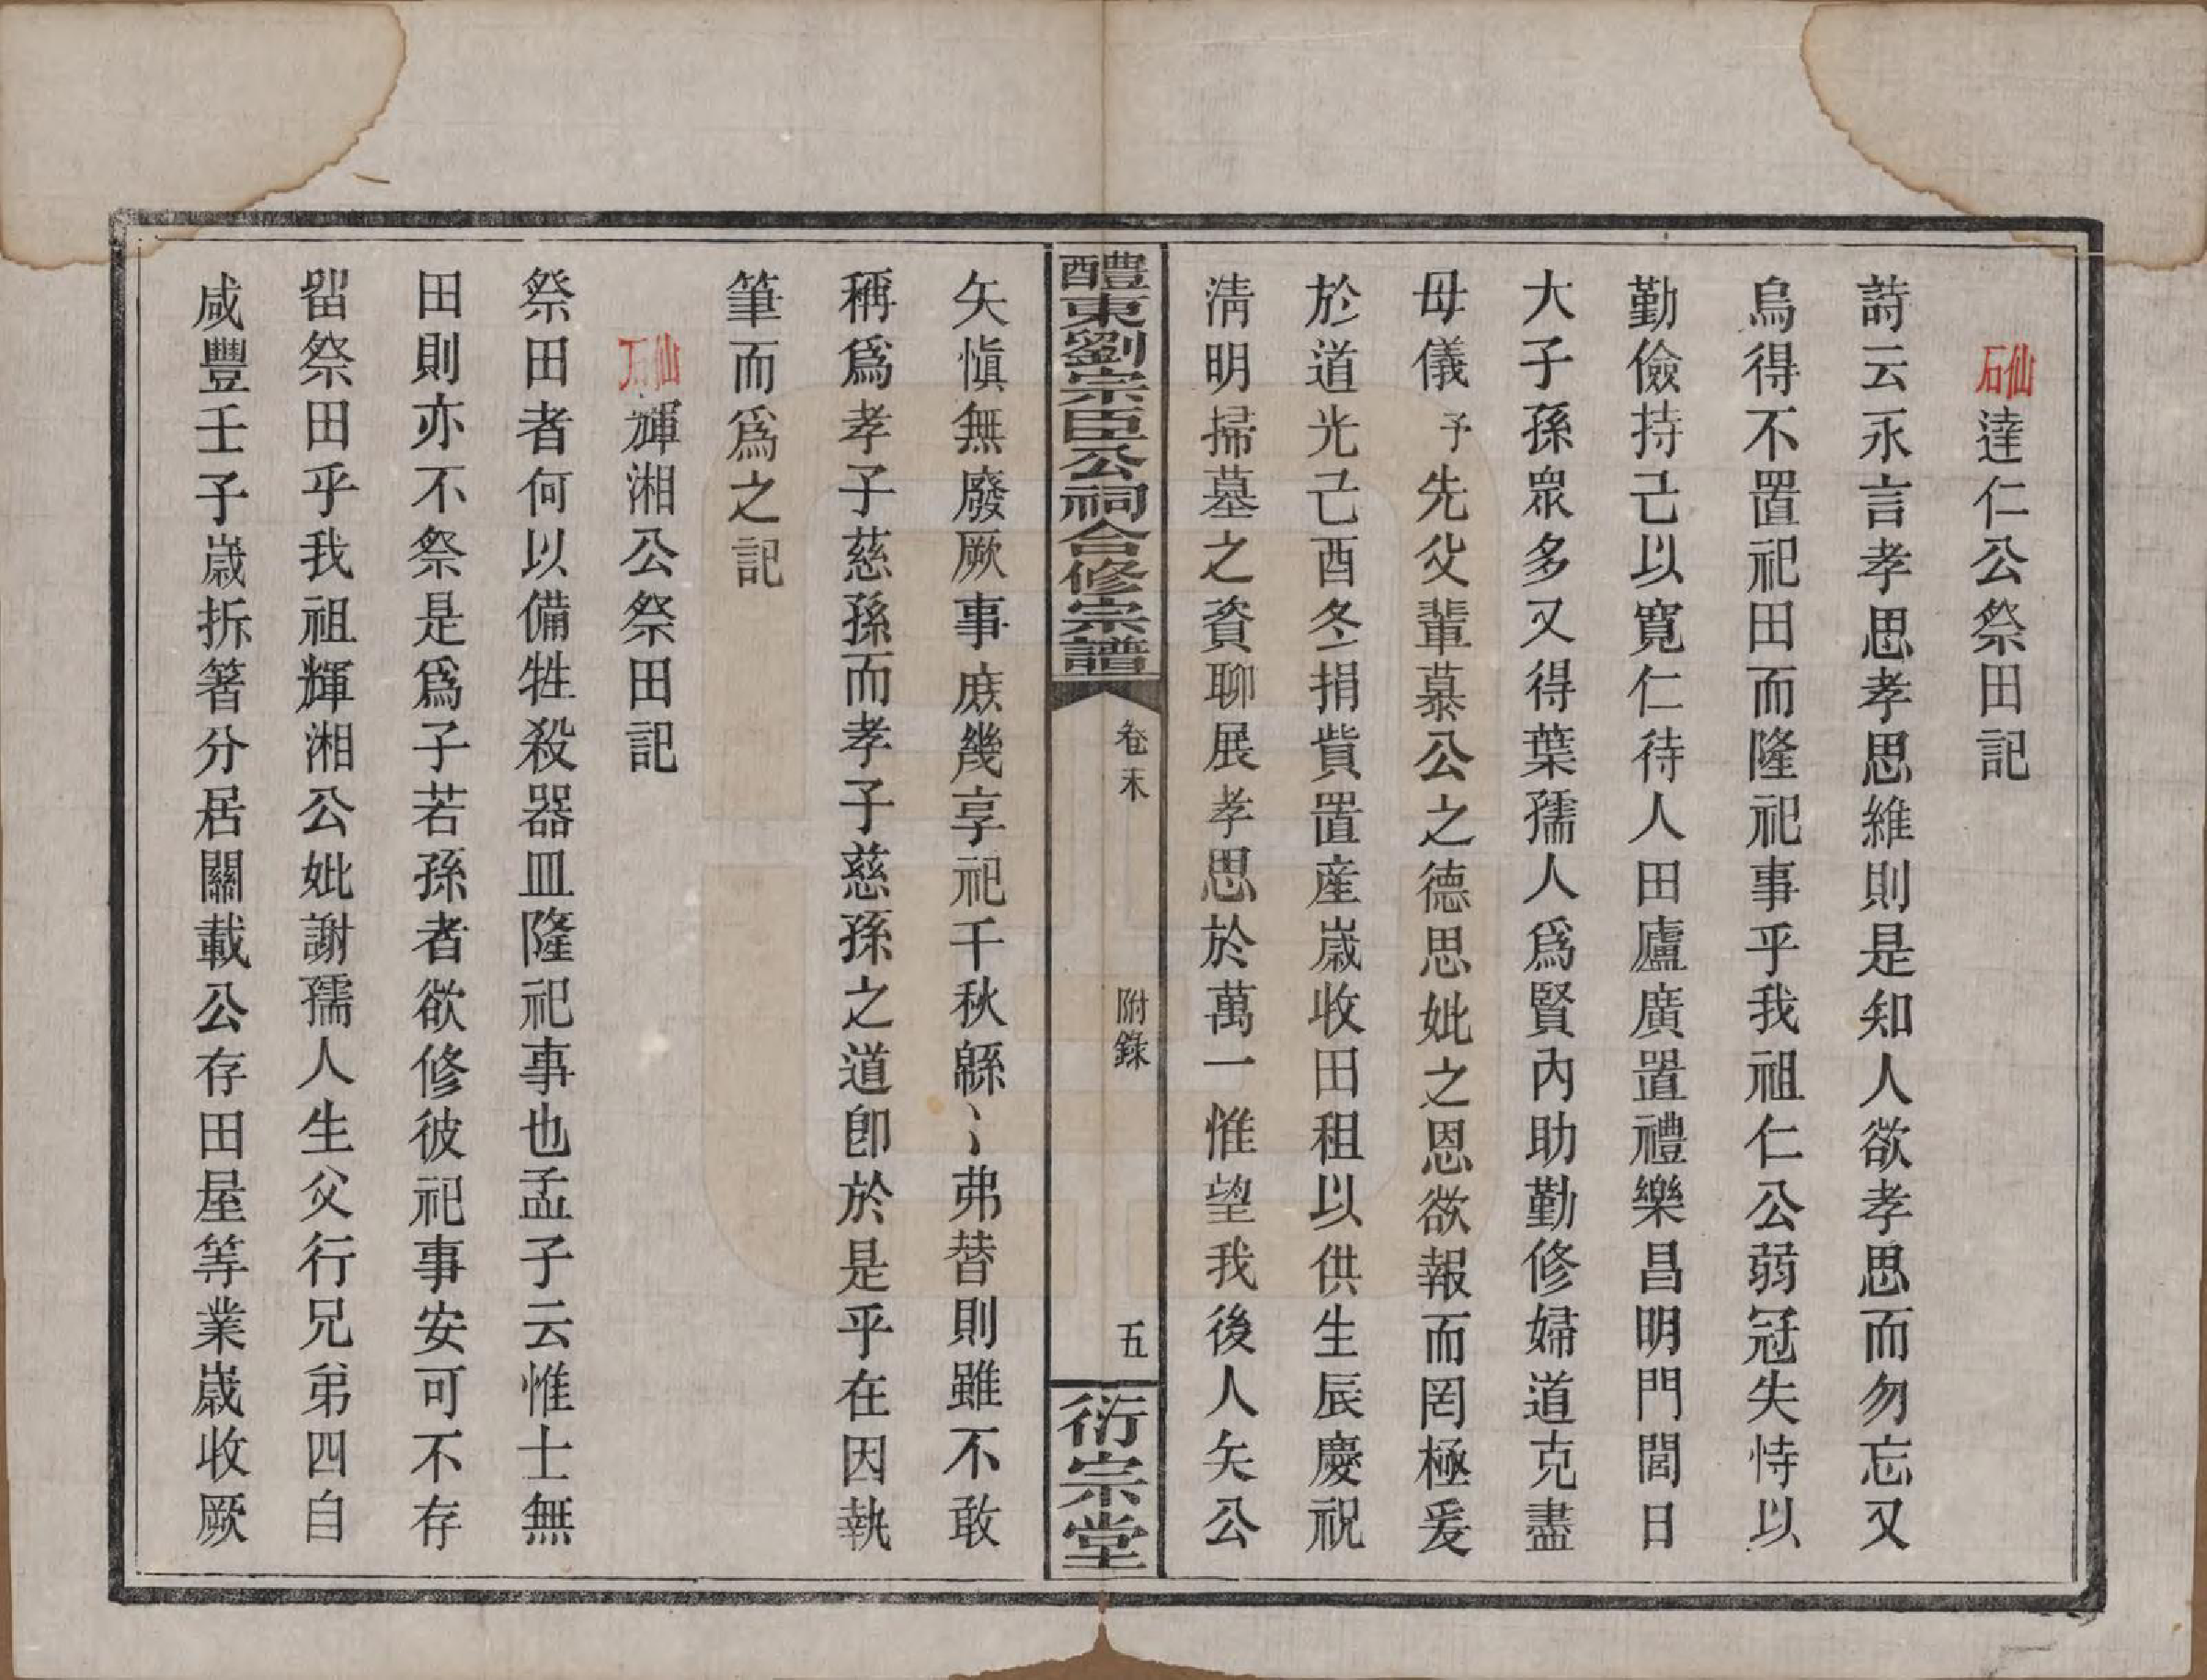 石仙達仁公祭田記
詩云永言孝思孝思維則是知人欲孝思而勿忘又
烏得不置祀田而隆祀事乎我祖仁公弱冠失恃以
勤儉持己以寬仁待人田廬廣置禮樂昌明門閭日
大子孫眾多又得葉孺人爲賢內助勤修婦道克盡
母儀予先父輩慕公之德思妣之恩欲報而罔極爰
於道光己酉冬捐貲置產歲收田租以供生辰慶祝
淸明掃墓之資聊展孝思於萬一惟望我後人矢公
醴東劉宗臣公祠合修宗譜 卷末 附錄 五 衍宗堂
矢愼無廢厥事庶幾享祀千秋緜〻弗替則雖不敢
稱爲孝子慈孫而孝子慈孫之道卽於是乎在因執
筆而爲之記
石仙輝湘公祭田記
祭田者何以備牲殺器皿隆祀事也孟子云惟士無
田則亦不祭是爲子若孫者欲修彼祀事安可不存
留祭田乎我祖輝湘公妣謝孺人生父行兄弟四自
咸豐壬子歲拆箸分居關載公存田屋等業歲收厥